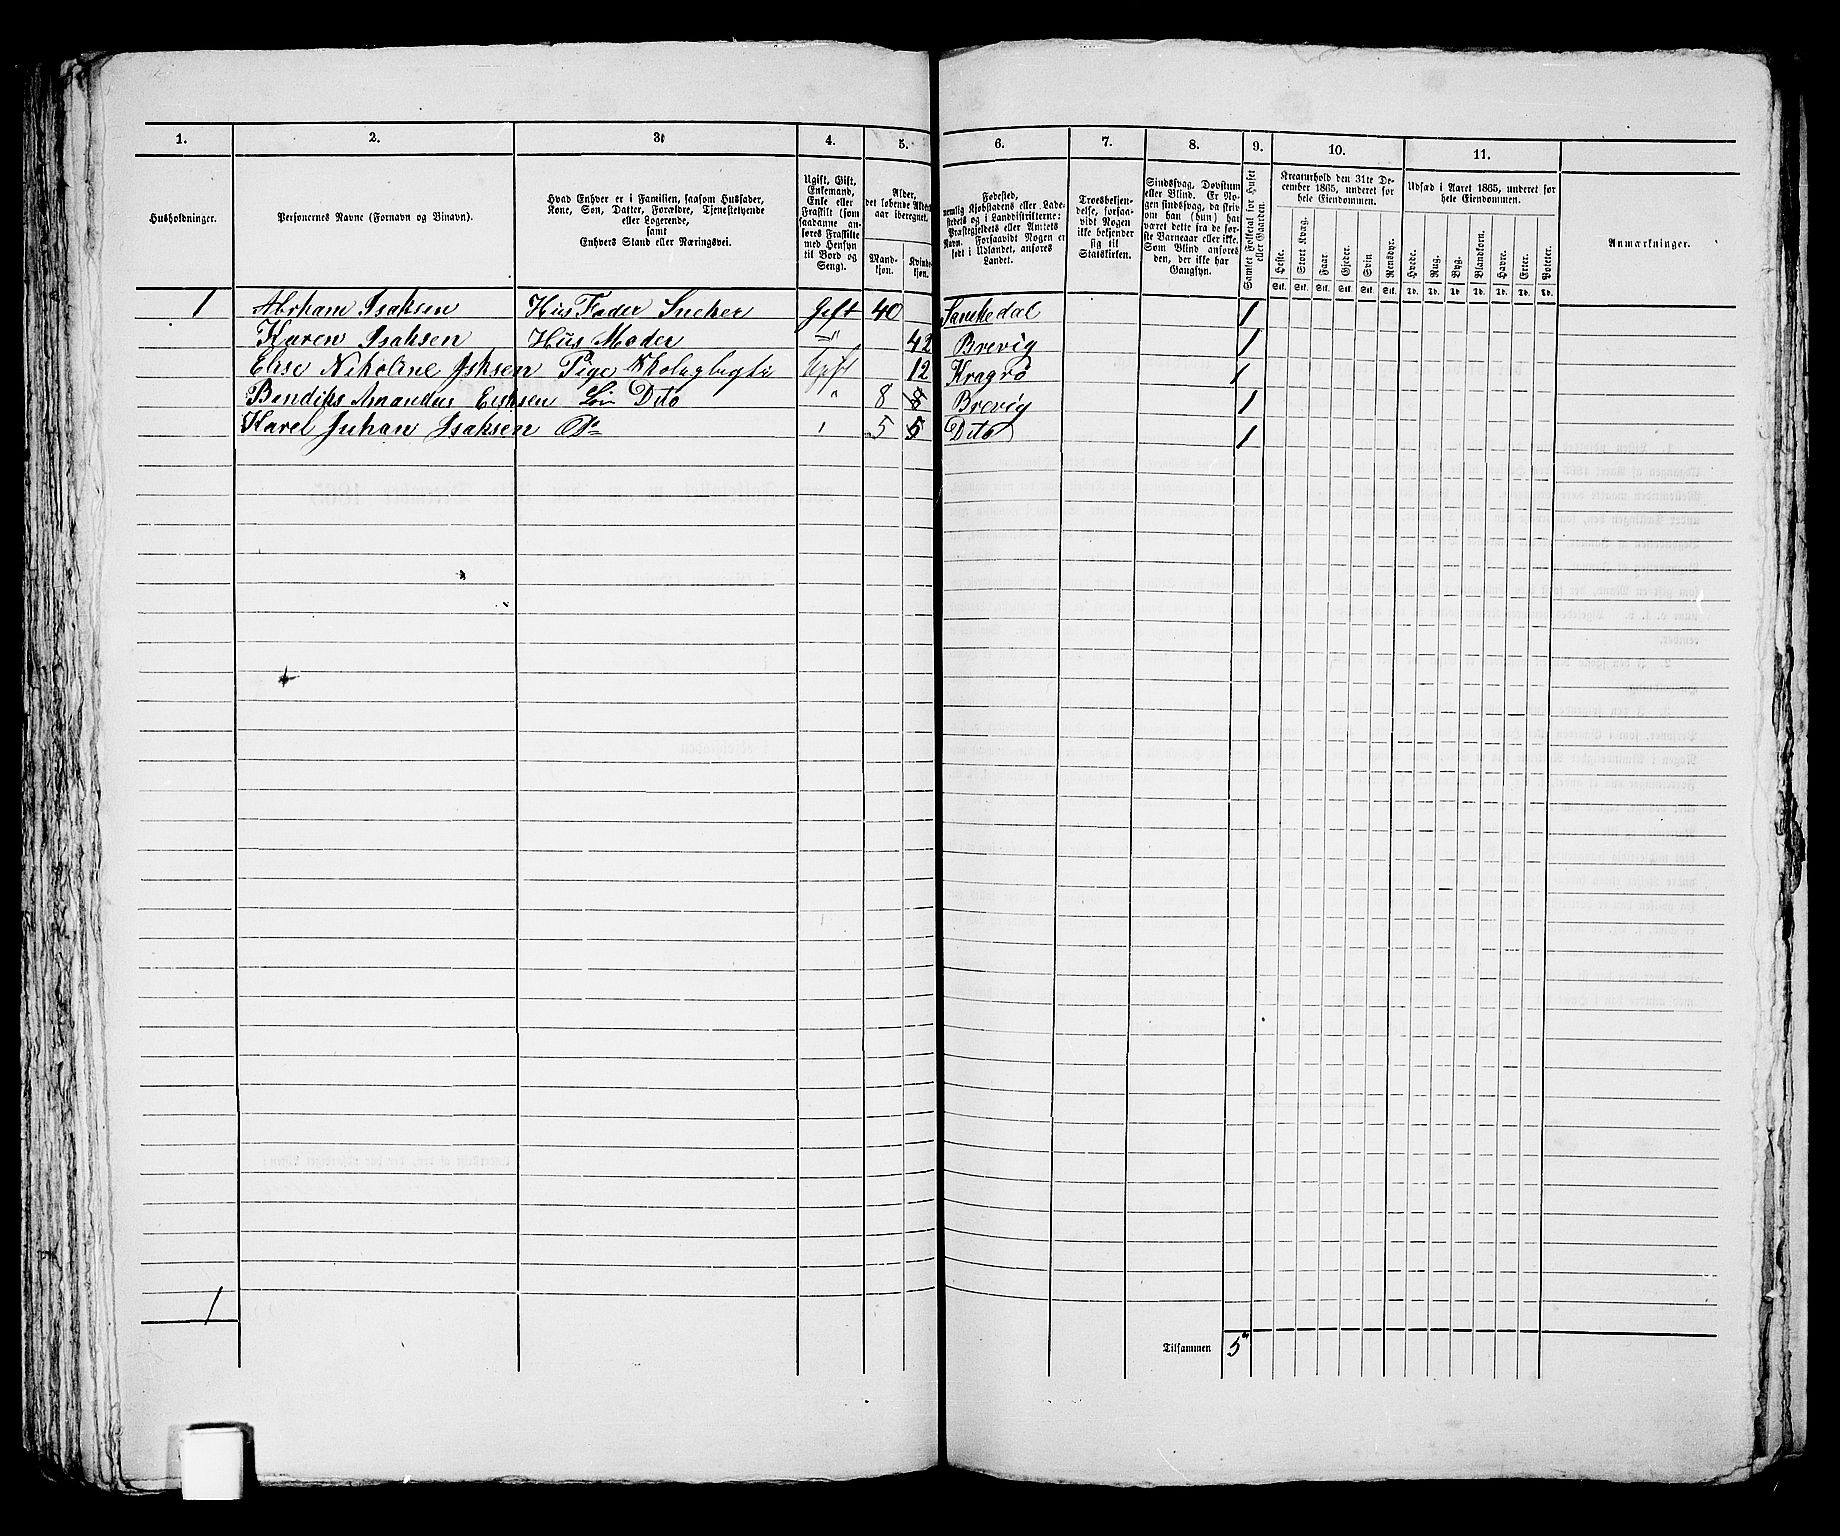 1. 2. 3. 4. 5. 6. 7. 8. 9. 10. 11.
Husholdninger.
Personernes Navne (Fornavn og Binavn).
Hvad Enhver er i Familien, saasom Husfader,
Kone, Søn, Datter, Forældre, Tjenestetyende
eller Logerende,
samt
Enhvers Stand eller Næringsvei.
Ugift, Gift,
Enkemand,
Enke eller
Fraskilt (som
saadanne an-
føres Fraskilte
med Hensyn
til Bord og
Seng).
Alder,
det løbende Alders-
aar iberegnet.
Mand-
kjøn.
Kvinde-
kjøn.
Fødested,
nemlig Kjøbstadens eller Lade-
stedets og i Landdistrikterne:
Præstegjeldets eller Amtets
Navn. Forsaavidt Nogen er
født i Udlandet, anføres
Landet.
Troesbekjen-
delse, forsaa-
vidt Nogen
ikke bekjender
sig til
Statskirken.
Sindssvag, Døvstum
eller Blind. Er No-
gen sindssvag, da skriv-
om han (hun) har
været dette fra de før-
ste Barneaar eller ikke.
Som Blind anføres
den, der ikke har
Gangsyn.
Samlet Folketal for Huset
eller Gaarden.
Kreaturhold den 31te De-
cember 1865, underet for
hele Eiendommen.
Heste. Stort Kvæg. Faar. Gjeder. Svin Rensdyr.
Stk. Stk. Stk. Stk. Stk. Stk.
Udsæd i Aaret 1865, underet for
hele Eiendommen.
Hvede. Rug. Byg. Blandkorn. Havre. Erter. Poteter.
Td. Td. Td. Td. Td. Td. Td.
Anmærkninger.
1 Abrham Isaksen Hus Fader Sneker Gift 40 Sanekedal 1
Karen Isaksen Hus Moder —"— 42 Brevig 1
Elise Nikoline Isksen Pige Ugift 12 Kragrø 1
Amandus Søn Dito " 8 8 Brevig 1
Karel Juhan Isaksen Do 5 5 Dito 1
1
Tilsammen 5